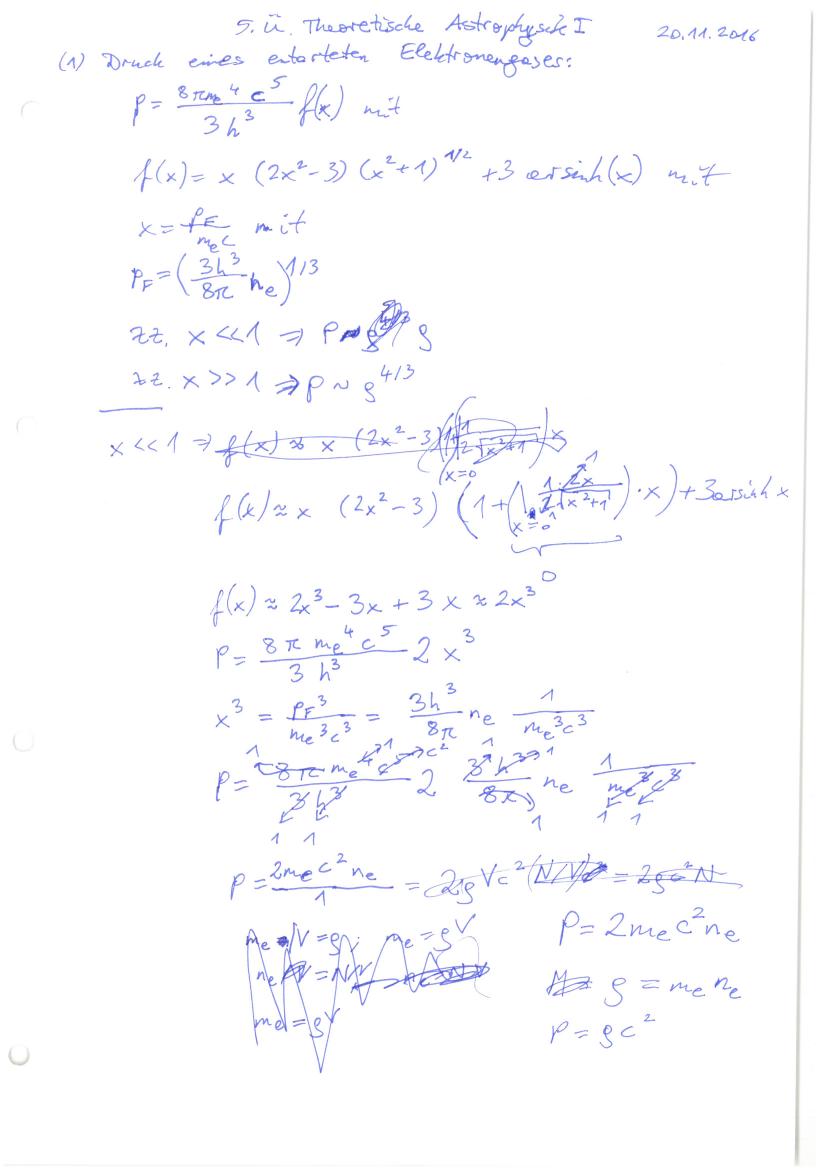 5. Ü. Theoretische Astrophysik I 20.11.2016
(1) Druck eines entarteten Elektronengases:
P = \frac{8πm_e^4 c^5}{3h^3} f(x) mit
f(x) = x (2x²-3) (x²+1)^{1/2} + 3 arsinh(x) mit
x = \frac{p_F}{m_e c} mit
p_F = (\frac{3h^3}{8π} n_e)^{1/3}
zz. x << 1 ⇒ P ~ ρ
zz. x >> 1 ⇒ P ~ ρ^{4/3}
x << 1 ⇒ f(x) ≈ x (2x²-3)
f(x) ≈ x (2x²-3) (1+(|_{x=0} \frac{1·2x}{2\sqrt{x²+1}})·x) + 3 arsinh x
0
f(x) ≈ 2x³ - 3x + 3x ≈ 2x³
P = \frac{8π m_e^4 c^5}{3 h^3} 2 x³
x³ = \frac{p_F^3}{m_e^3 c^3} = \frac{3h^3}{8π} n_e \frac{1}{m_e^3 c^3}
P = \frac{8π m_e^4 c^5}{3 h^3} 2 \frac{3 h^3}{8π} n_e \frac{1}{m_e^3 c^3}
P = \frac{2m_e c² n_e}{1} = 2ρVc² (N/V) = 2ρc²N
m_e N = ρV; m_e = ρV P = 2m_e c² n_e
n_e = N/V ρ = m_e n_e
m_e = ρV P = ρc²